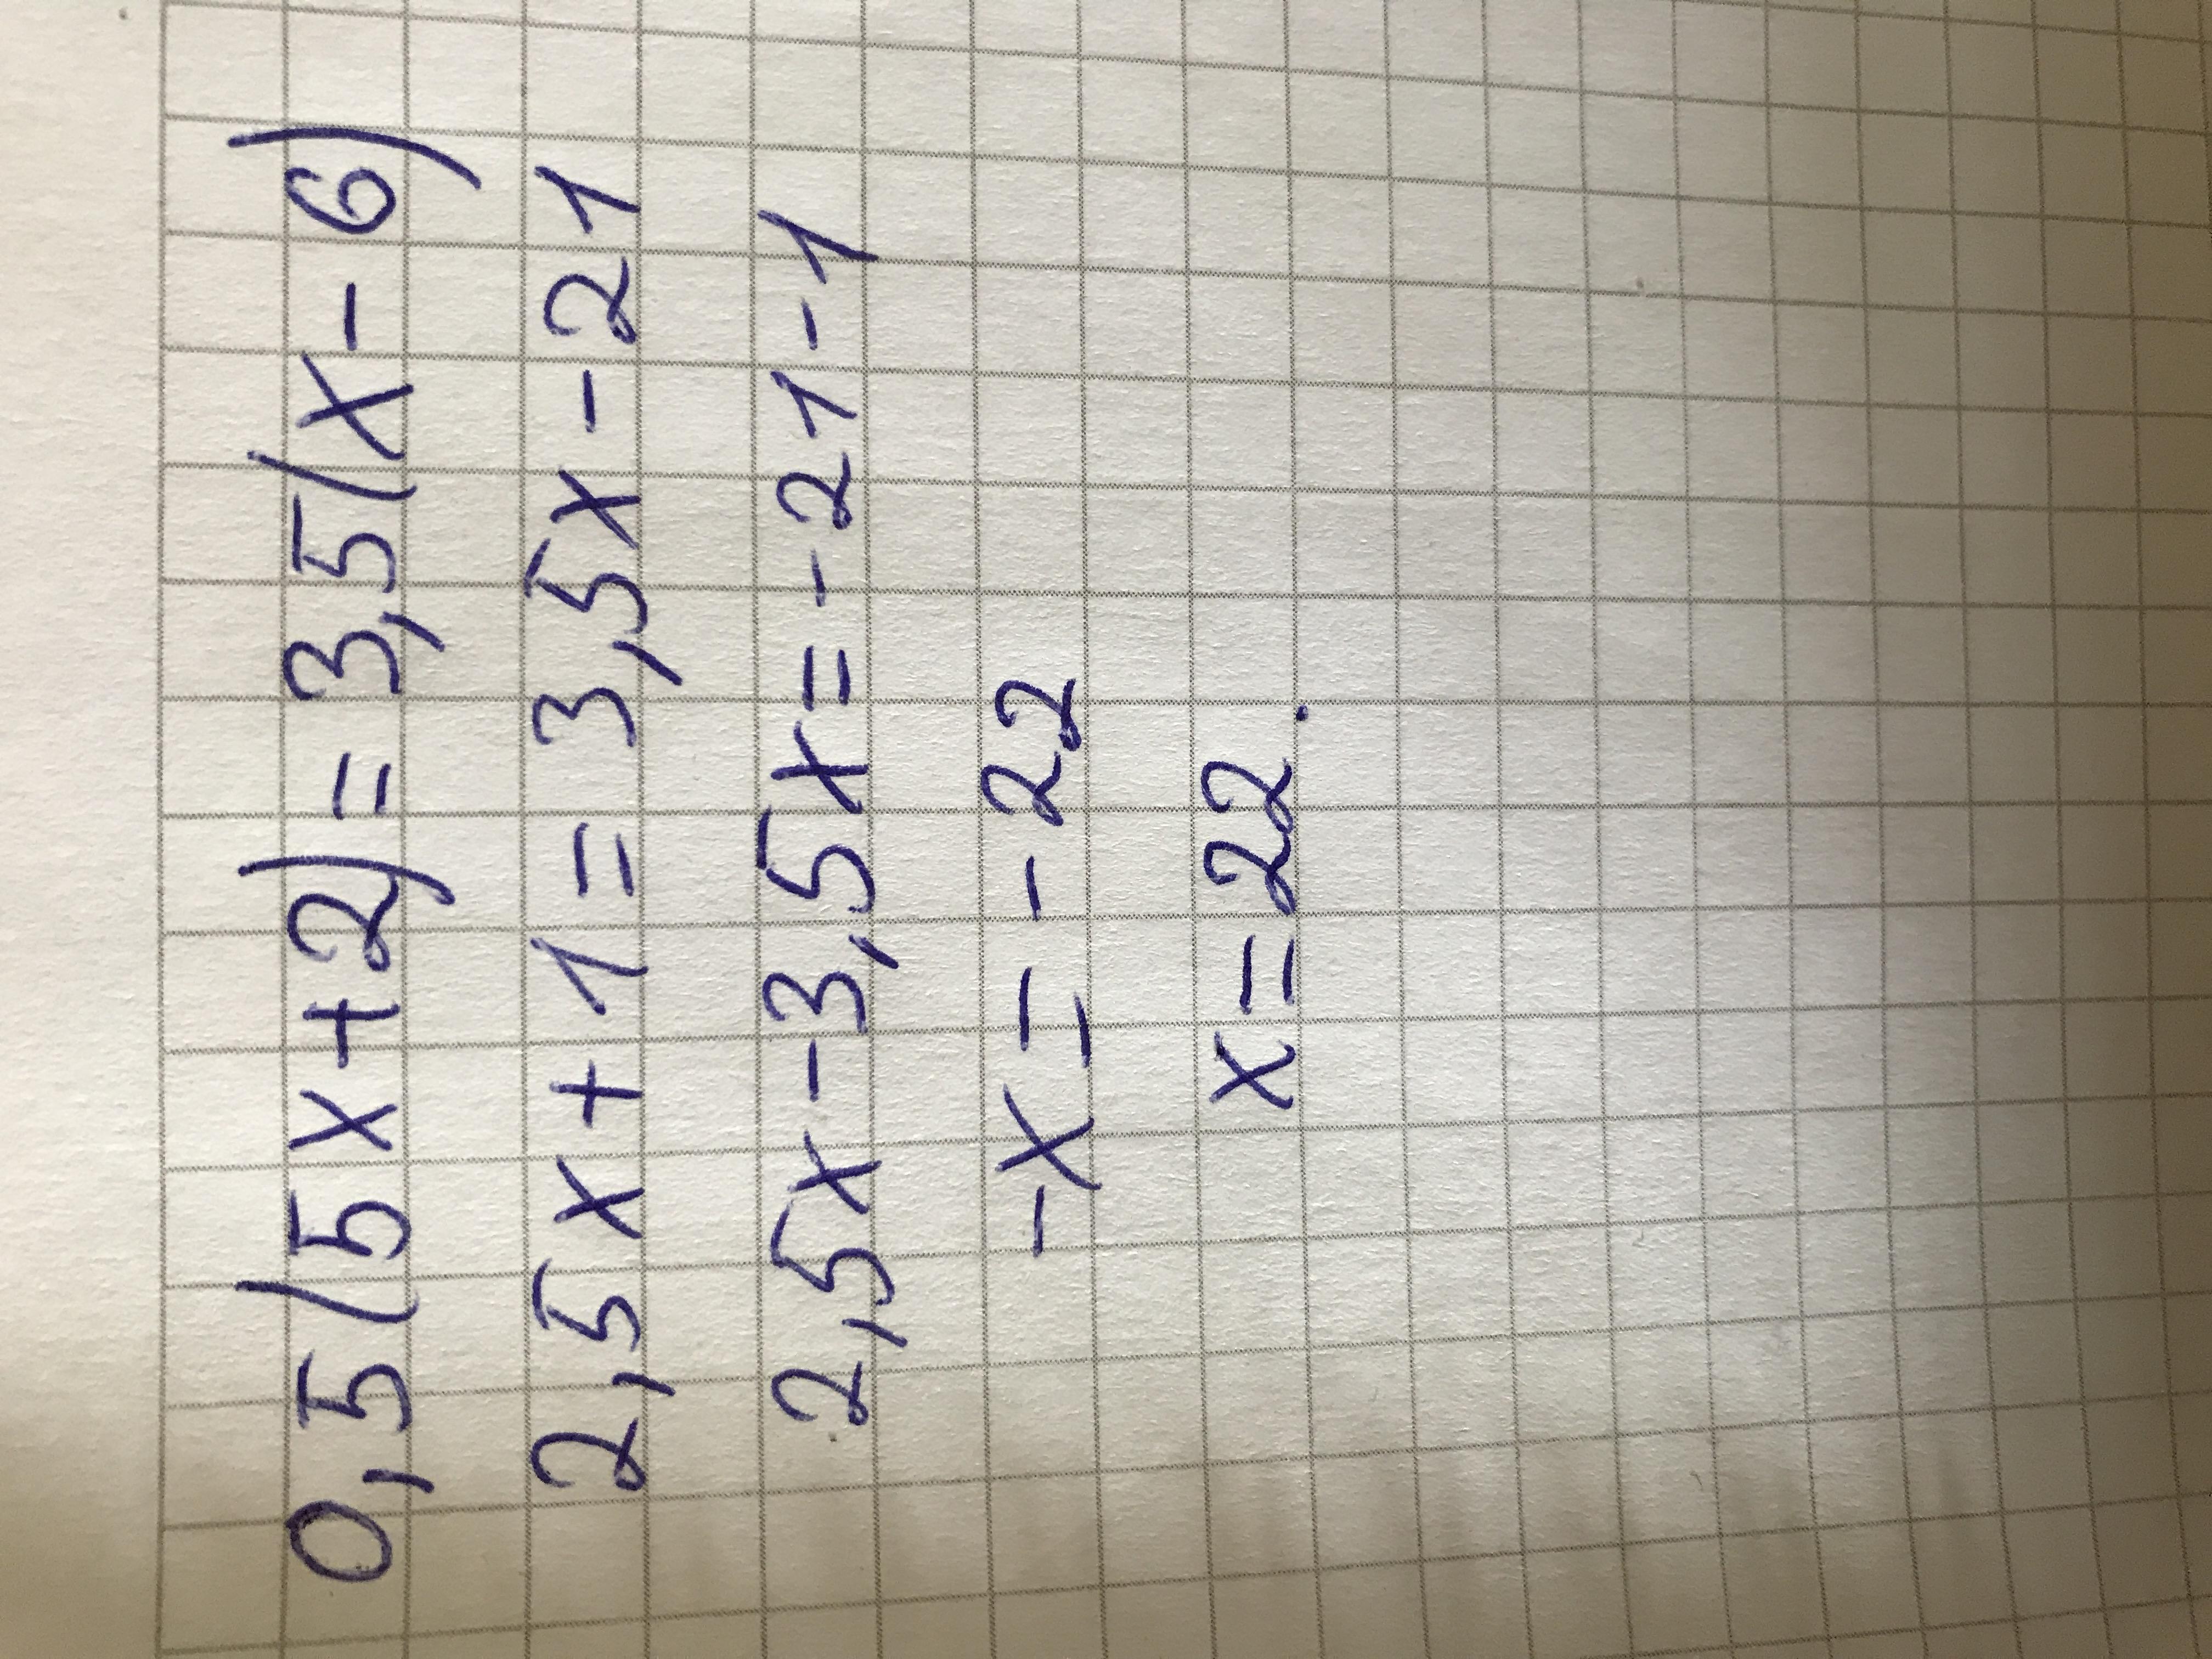 0,5(5x+2)=3,5(x-6)
2,5x+1=3,5x-21
2,5x-3,5x=-21-1
-x=-22
x=22.